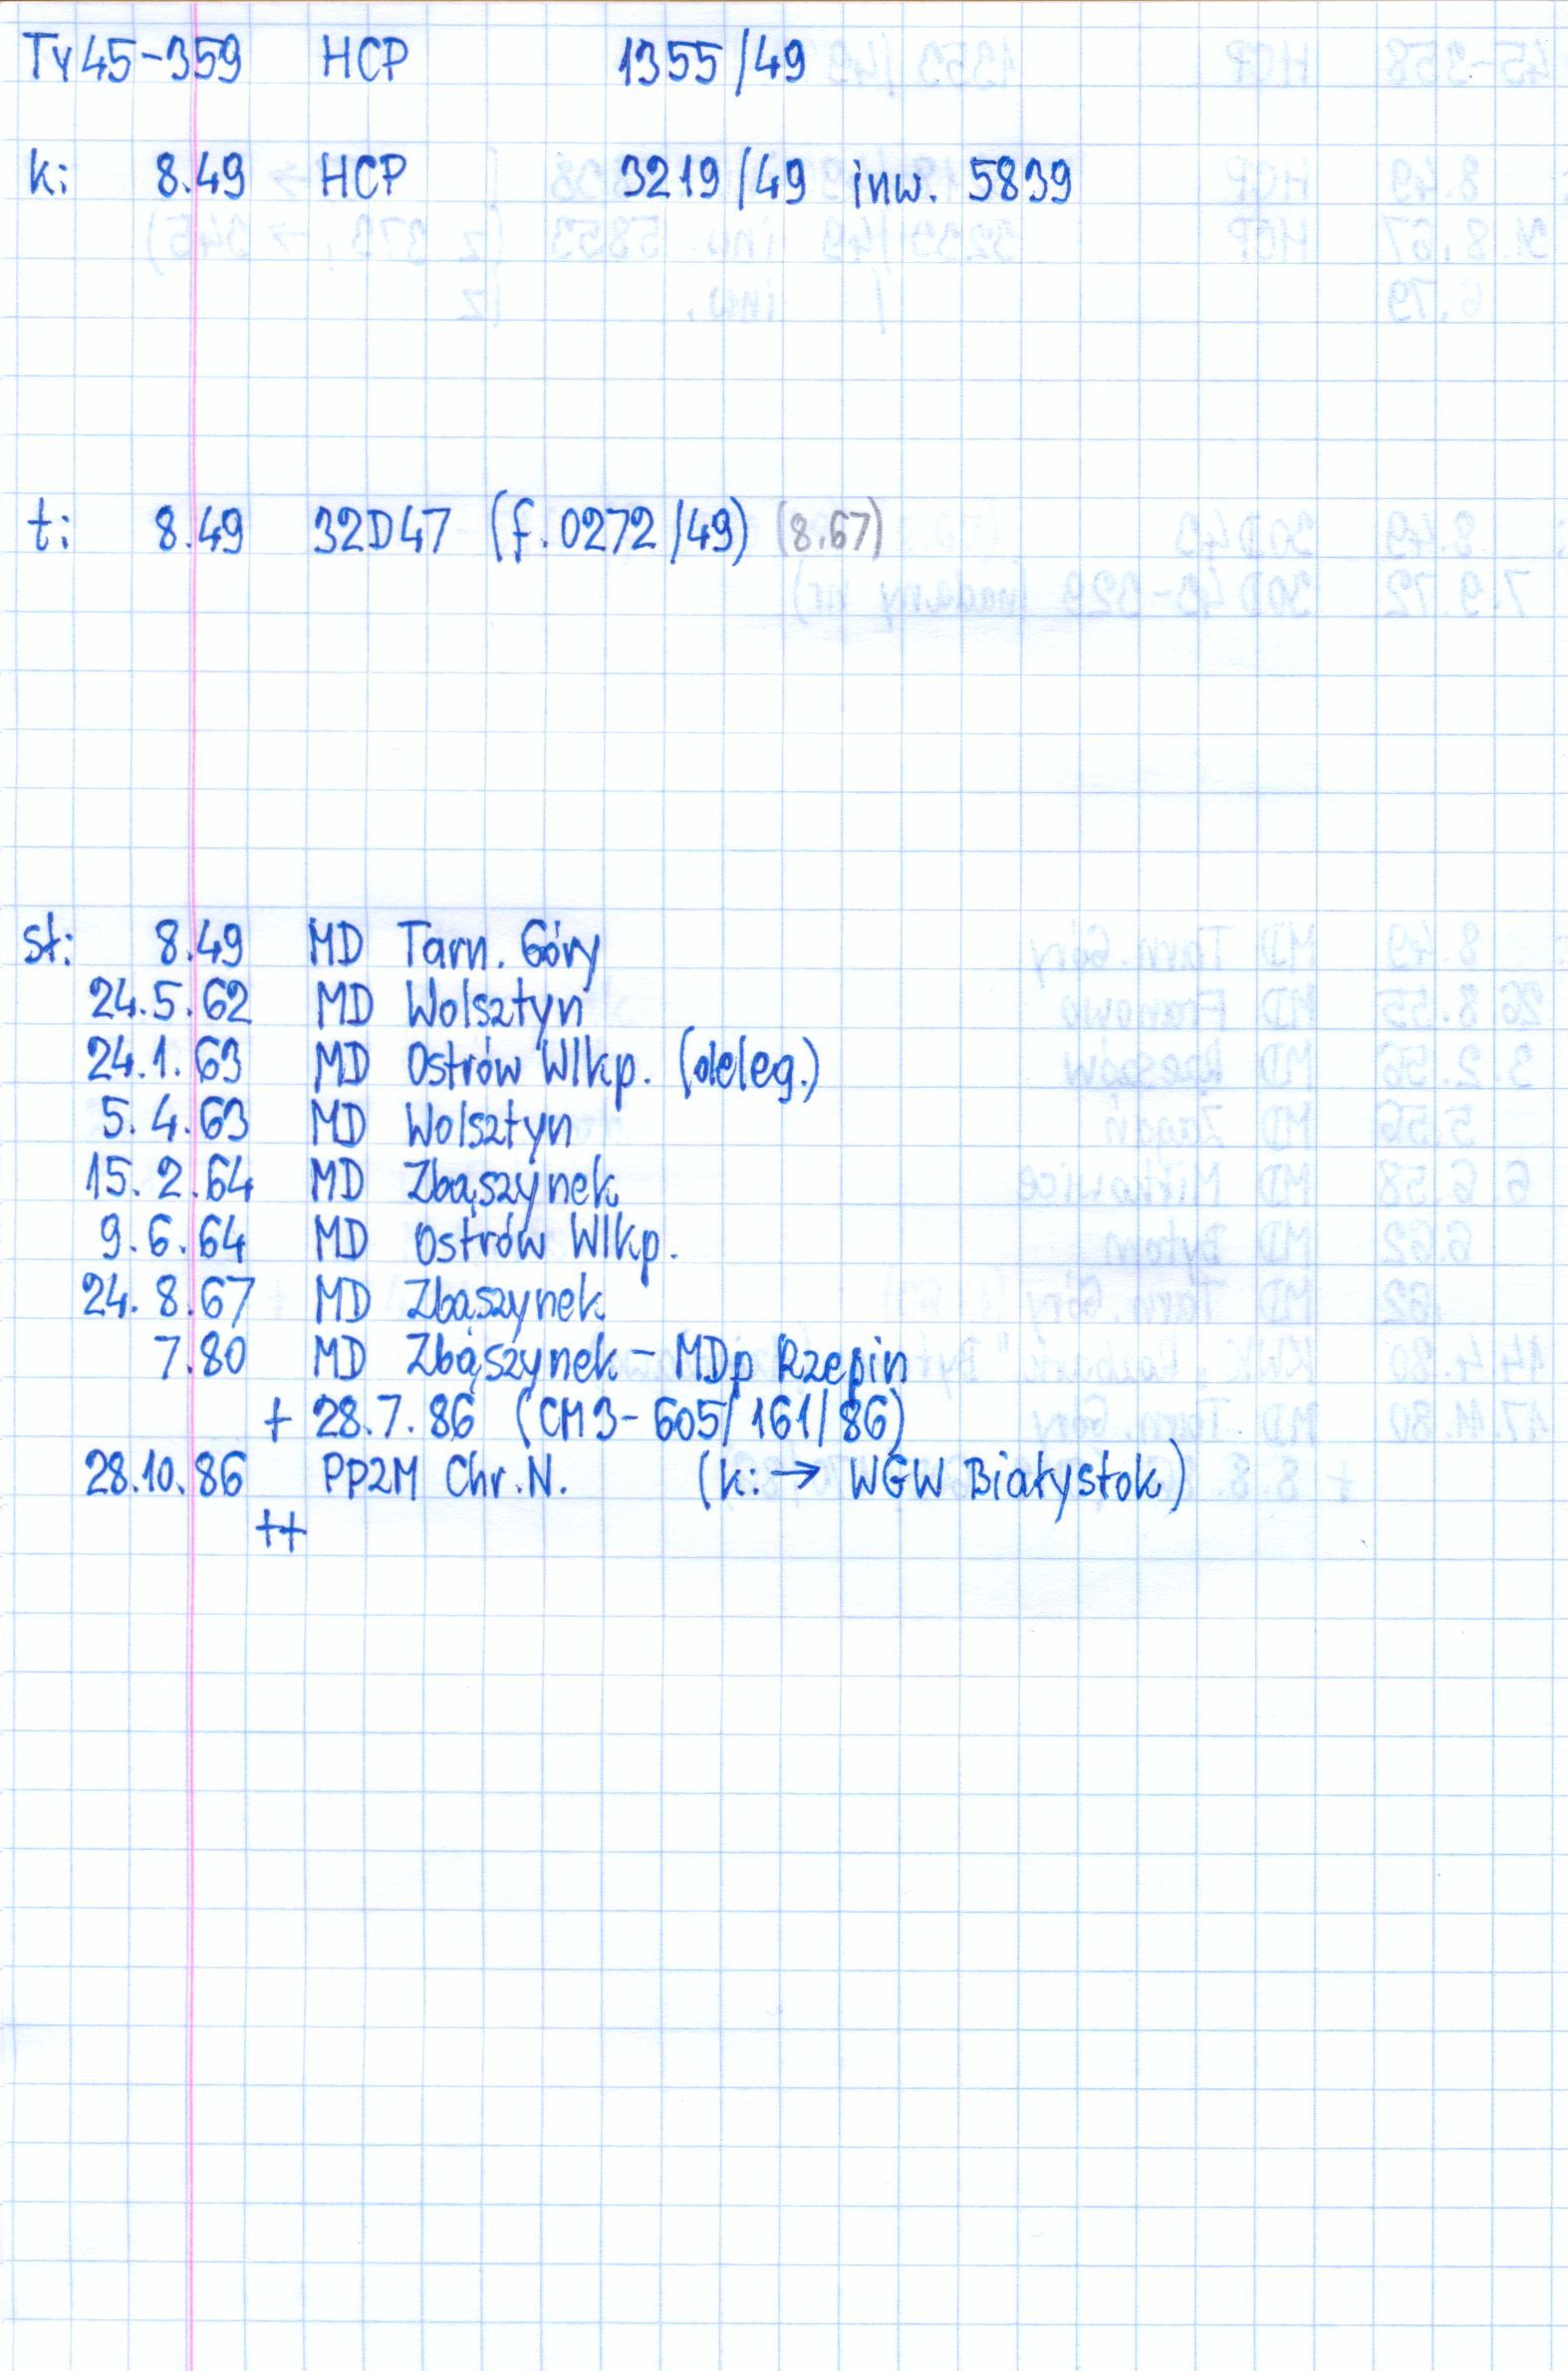 Ty45-359 HCP 1355/49
k: 8.49 HCP 3219/49 inw. 5839
t: 8.49 32D47 (f.0272/49) (8.67)
st: 8.49 MD Tarn. Góry
24.5.62 MD Wolsztyn
24.1.63 MD Ostrów Wlkp. (deleg.)
5.4.63 MD Wolsztyn
15.2.64 MD Zbąszynek
9.6.64 MD Ostrów Wlkp.
24.8.67 MD Zbąszynek
7.80 MD Zbąszynek - MDp Rzepin
+ 28.7.86 (CM3-605/161/86)
28.10.86 PPZM Chr.N. (k: → WGW Białystok)
++